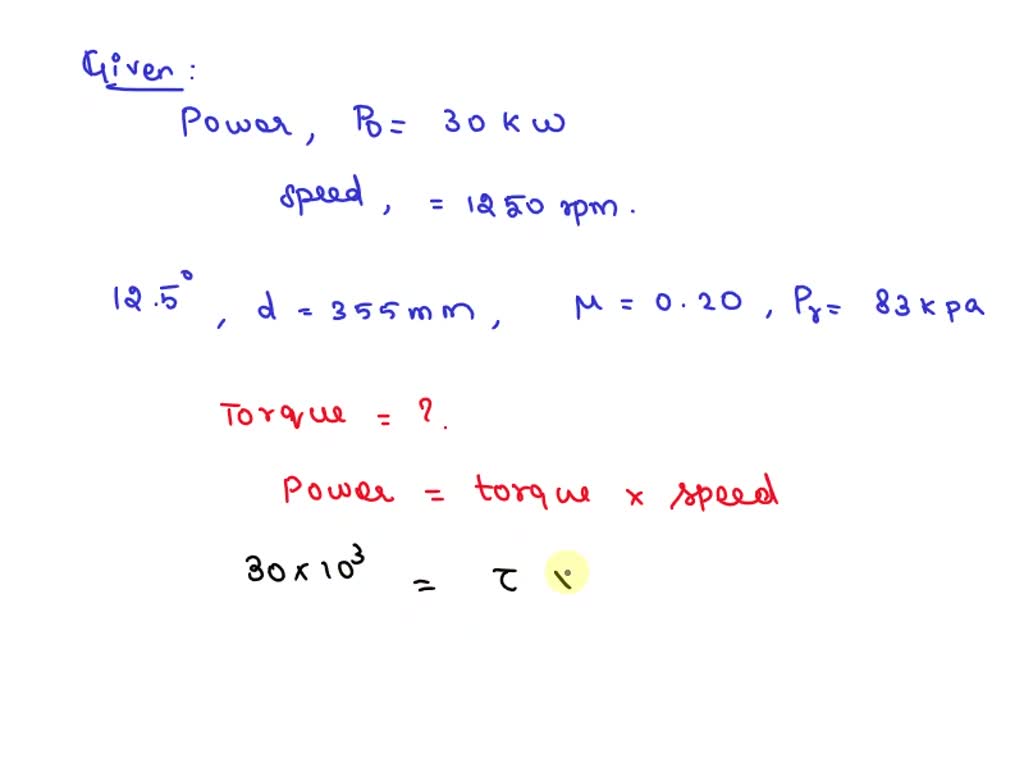 Given :
Power, P₀ = 30 kW
speed, = 1250 rpm.
12.5°, d = 355mm, μ = 0.20, Pᵣ = 83 kpa
Torque = ?.
Power = torque × speed
30 × 10³ = τ